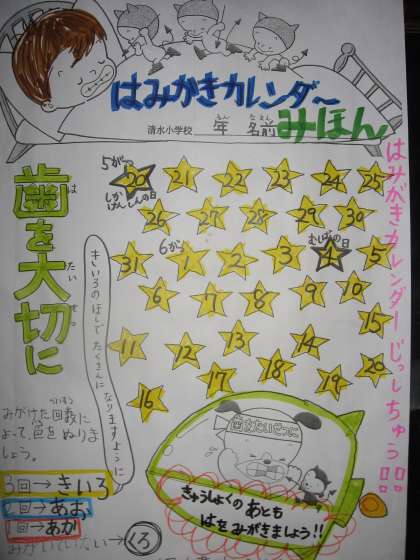 はみがきカレンダー
清水小学校 年 名前
ねん なまえ
みほん
はみがきカレンダーじっしちゅう!!
歯を大切に
は たい せつ
5がつ
20 21 22 23 24 25
しか けんしんの日
26 27 28 29 30
6がつ
むしばの日
31 1 2 3 4 5
6 7 8 9 10
11 12 13 14 15
16 17 18 19 20
きいろのほしでたくさんになりますように
みがけた回数に
かいすう
よって、色をぬりま
しょう。
3回→きいろ
2回→あお
1回→あか
みがいていない→くろ
歯をたいせつに
きゅうしょくのあとも
はをみがきましょう!!